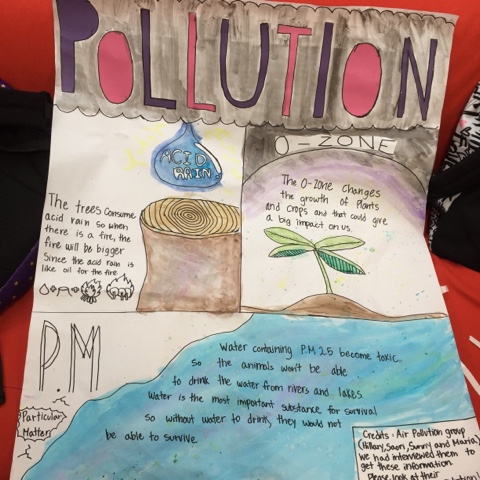 POLLUTION
ACID
RAIN
O-ZONE
The O-Zone Changes
the growth of Plants
and crops and that could give
a big impact on us.
The trees consume
acid rain so when
there is a fire, the
fire will be bigger
Since the acid rain is
like oil for the fire
P.M
Particular
Matters
Water containing P.M 2.5 become toxic.
So the animals won't be able
to drink the water from rivers and lakes.
Water is the most important substance for survival
so without water to drink, they would not
be able to survive.
Credits: Air Pollution group
(Hillary, Saori, Sunny and Maria)
We had interviewed them to
get these information.
Please look at their